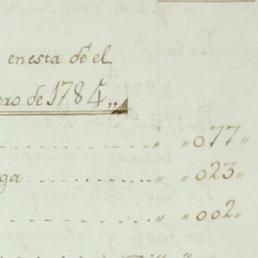 enesta de el
ero de 1784,,
,, ,, 077 ,,
ga ,, ,, 023 ,,
,, ,, 002 ,,